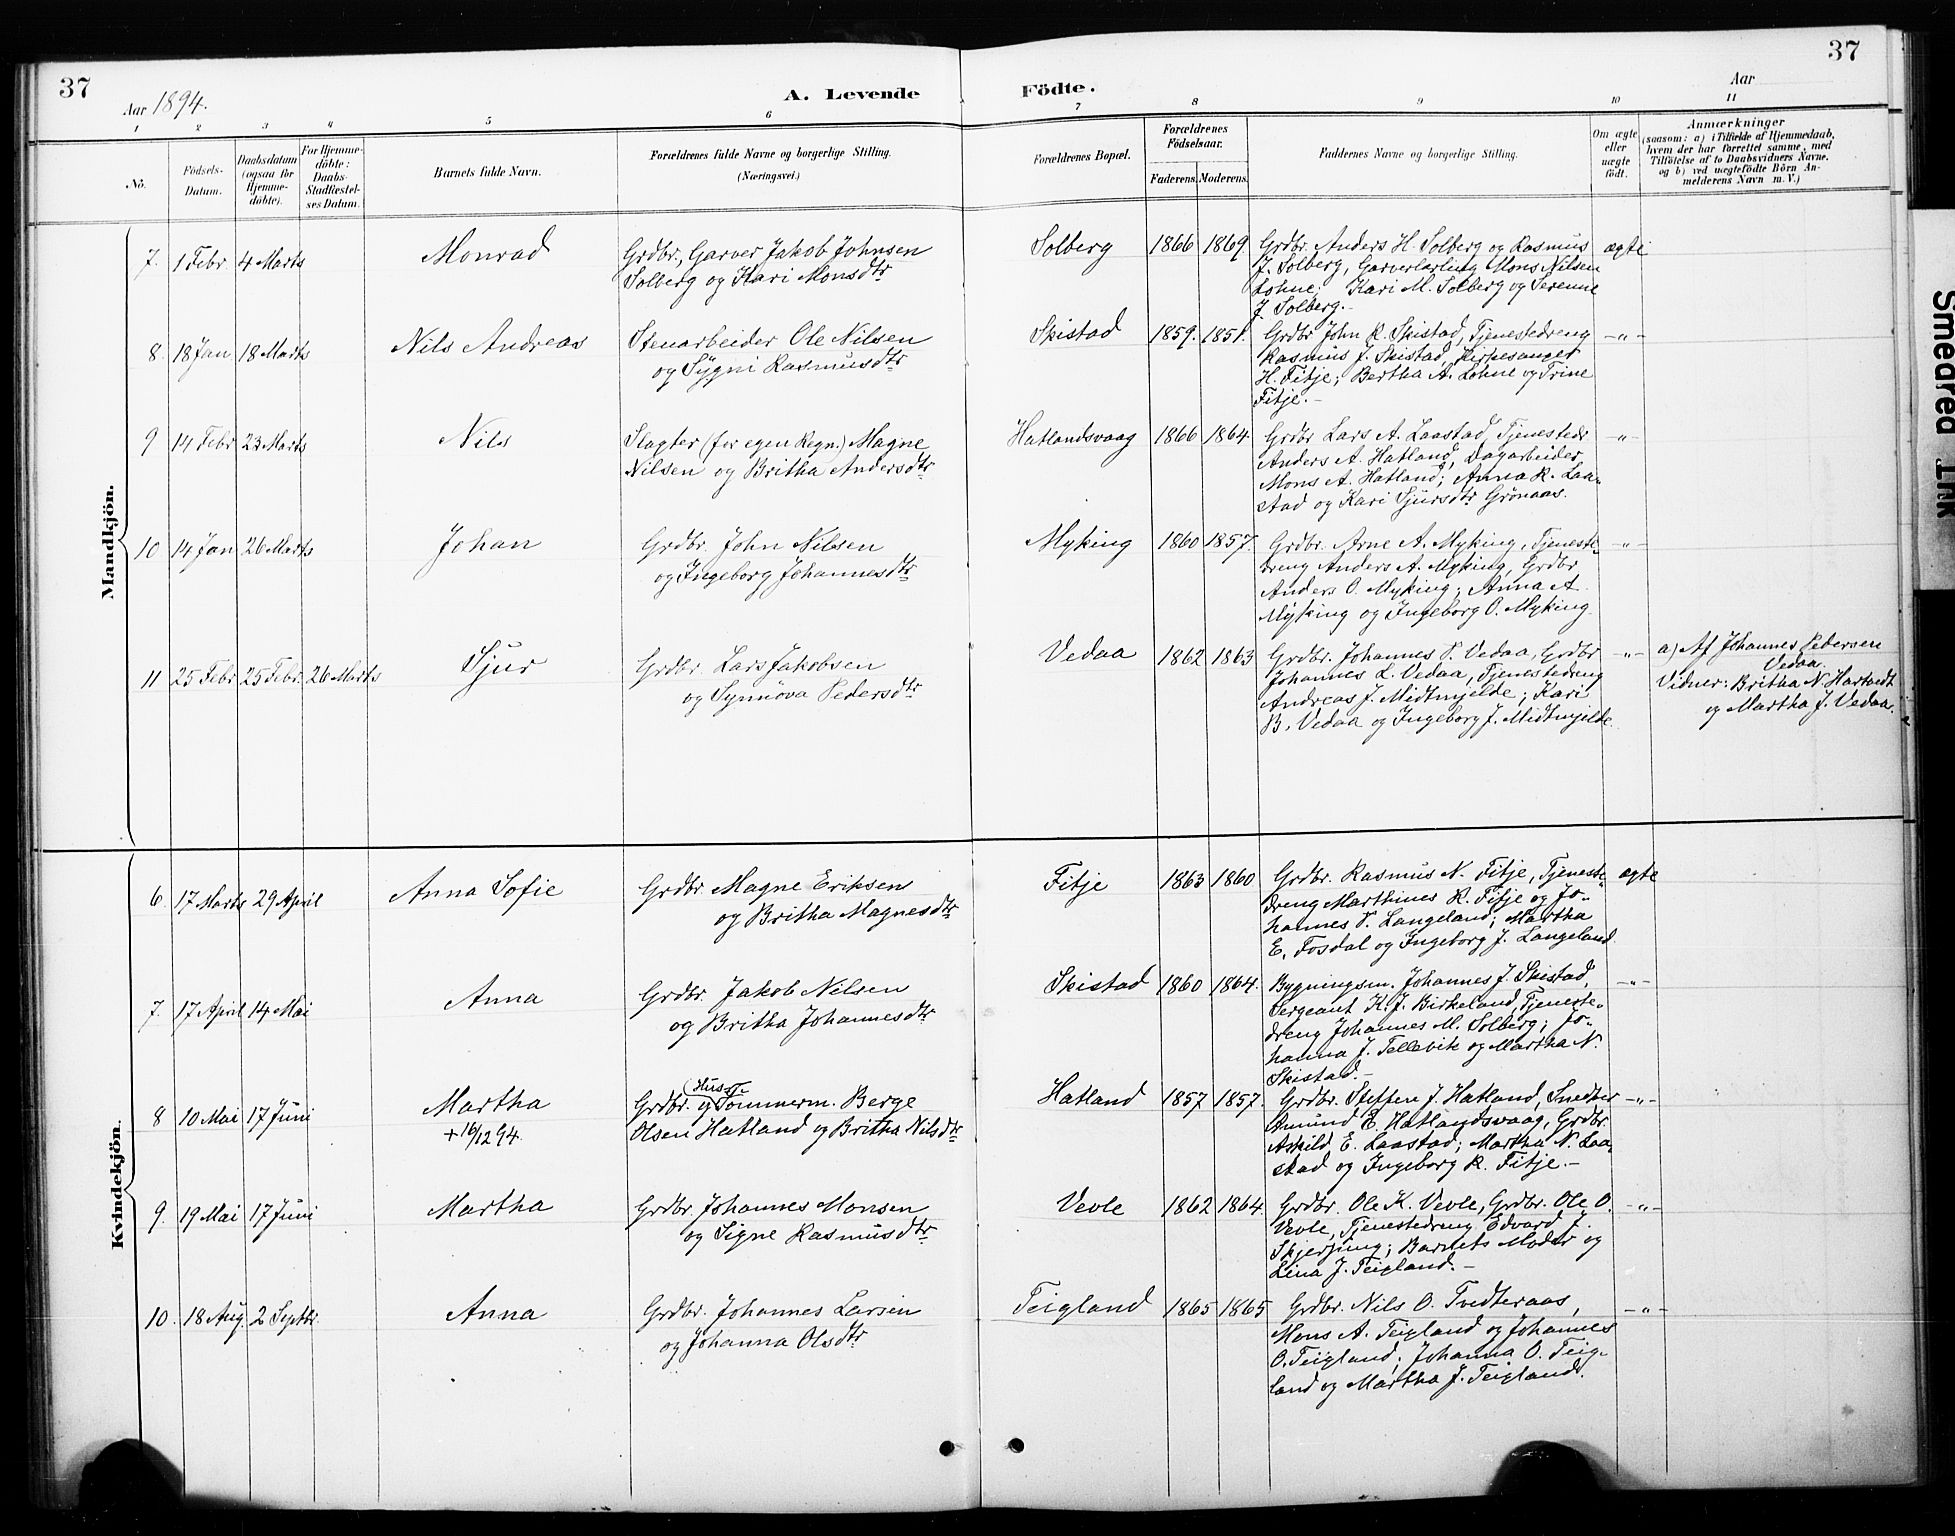 37
Aar 1894.
A. Levende
Födte.
Aar
37
1
2
3
4
5
6
7
8
9
10
11
No.
Födsels-
Datum.
Daabsdatum
(ogsaa for
Hjemme-
döbte).
For Hjemme-
döbte:
Daabs-
Stadfæstel-
ses Datum.
Barnets fulde Navn.
Forældrenes fulde Navne og borgerlige Stilling.
(Næringsvei.)
Forældrenes Bopæl.
Forældrenes
Födselsaar.
Faderens. Moderens.
Faddernes Navne og borgerlige Stilling.
Om ægte
eller
uægte
födt.
Anmærkninger
(saasom: a) i Tilfælde af Hjemmedaab,
hvem der har forrettet samme, med
Tilföielse af to Daabsvidners Navne.
og b) ved uægtefödte Börn An-
melderens Navn m. V.)
Mandkjön.
7. 1 Febr 4 Marts
Monrad
Grdbr., Garver Jakob Johnsen
Solberg og Kari Monsdtr
Solberg
1866 1869.
Grdbr. Anders H. Solberg og Rasmus
J. Solberg, Garverlærling Mons Nilsen
Lohne; Kari M. Solberg og Serenne
J. Solberg.-
ægte
8. 18 Jan 18 Marts
Nils Andreas
Stenarbeider Ole Nilsen
og Sygni Rasmusdtr
Skistad
1859. 1851.
Grdbr John R. Skistad, Tjenestedreng
Rasmus J. Skistad, Kirkesanger
H. Fitje; Bertha A. Lohne og Trine
Fitje.-
-"-
9 14 Febr 23 Marts
Nils
Slagter (for egen Regn.) Magne
Nilsen og Britha Andersdtr
Hatlandsvaag
1866 1864.
Grdbr Lars A. Laastad, Tjenestedr
Anders A. Hatland, Dagarbeider
Mons A. Hatland; Anna R. Laa-
stad og Kari Sjursdtr Grönaas.
-"-
10 14 Jan 26 Marts
Johan
Grdbr. John Nilsen
og Ingeborg Johannesdtr
Myking
1860 1857.
Grdbr. Arne A. Myking, Tjeneste-
dreng Anders A. Myking, Grdbr
Anders O. Myking; Anna A.
Myking og Ingeborg O. Myking
-"-
11 25 Febr 25 Febr. 26 Marts
Sjur
Grdbr. Lars Jakobsen
og Synnöva Pedersdtr
Vedaa
1862 1863
Grdbr. Johannes P. Vedaa, Grdbr
Johannes L. Vedaa, Tjenestedreng
Andreas J. Midtmjelde; Kari
B. Vedaa og Ingeborg J. Midtmjelde.
-"-
a) Af Johannes Pedersen
Vedaa.
Vidner: Britha N. Hartvedt
og Martha J. Vedaa.
Kvindekjön.
6. 17 Marts 29 April
Anna Sofie
Grdbr Magne Eriksen
og Britha Magnesdtr
Fitje
1863 1860
Grdbr. Rasmus N. Fitje, Tjeneste-
dreng Marthines R. Fitje og Jo-
hannes P. Langeland; Martha
E. Fosdal og Ingeborg J. Langeland
ægte
7. 17 April 14 Mai
Anna
Grdbr. Jakob Nilsen
og Britha Johannesdtr
Skistad
1860 1864.
Bygningsm. Johannes J. Skistad,
Sergeant K. J. Birkeland, Tjeneste-
dreng Johannes M. Solberg; Jo-
hanna J. Tellevik og Martha N.
Skistad.-
-"-
8 10 Mai 17 Juni
Martha
+16/12 94.
(Husf.
Grdbr. og Tommerm. Berge
Olsen Hatland og Britha Nilsdtr
Hatland
1857 1857.
Grdbr. Steffen J. Hatland, Snedker
Amund E. Hatlandsvaag, Grdbr.
Askild E. Laastad; Martha N. Laa-
stad og Ingeborg R. Fitje.-
-"-
9. 19 Mai 17 Juni
Martha
Grdbr. Johannes Monsen
og Signe Rasmusdtr
Vevle
1862 1864.
Grdbr. Ole K. Vevle, Grdbr. Ole O.
Vevle, Tjenestedreng Edvard J.
Skjerjung; Barnets Moder og
Lina J. Teigland.-
-"-
10. 18 Aug. 2 Septbr.
Anna
Grdbr. Johannes Larsen
og Johanna Olsdtr
Teigland
1865 1865
Grdbr. Nils O. Tvedteraas,
Mons A. Teigland og Johannes
O. Teigland; Johanna O. Teig-
land og Martha J. Teigland.
-"-
Smeared Ink